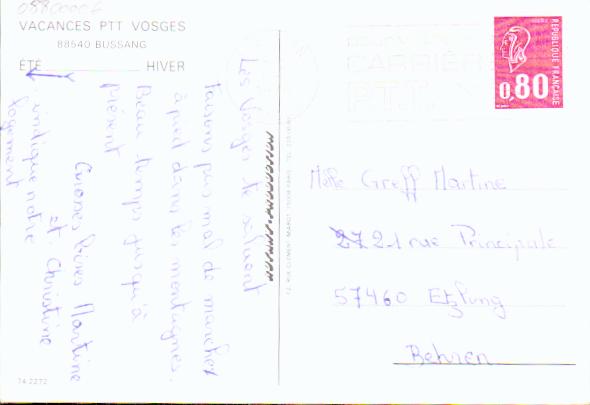 VACANCES PTT VOSGES
88540 BUSSANG
ÉTÉ HIVER
Les Vosges te saluent
faisons pas mal de marches
à pied dans les montagnes.
Beau temps jusqu'à
présent
Grosses bises Martine
et Christine
indique notre
logement
74 2272
CARRIÈRE
P.T.T.
RÉPUBLIQUE FRANÇAISE
0,80
Melle Greff Martine
27 21 rue Principale
57460 Etzling
Behren